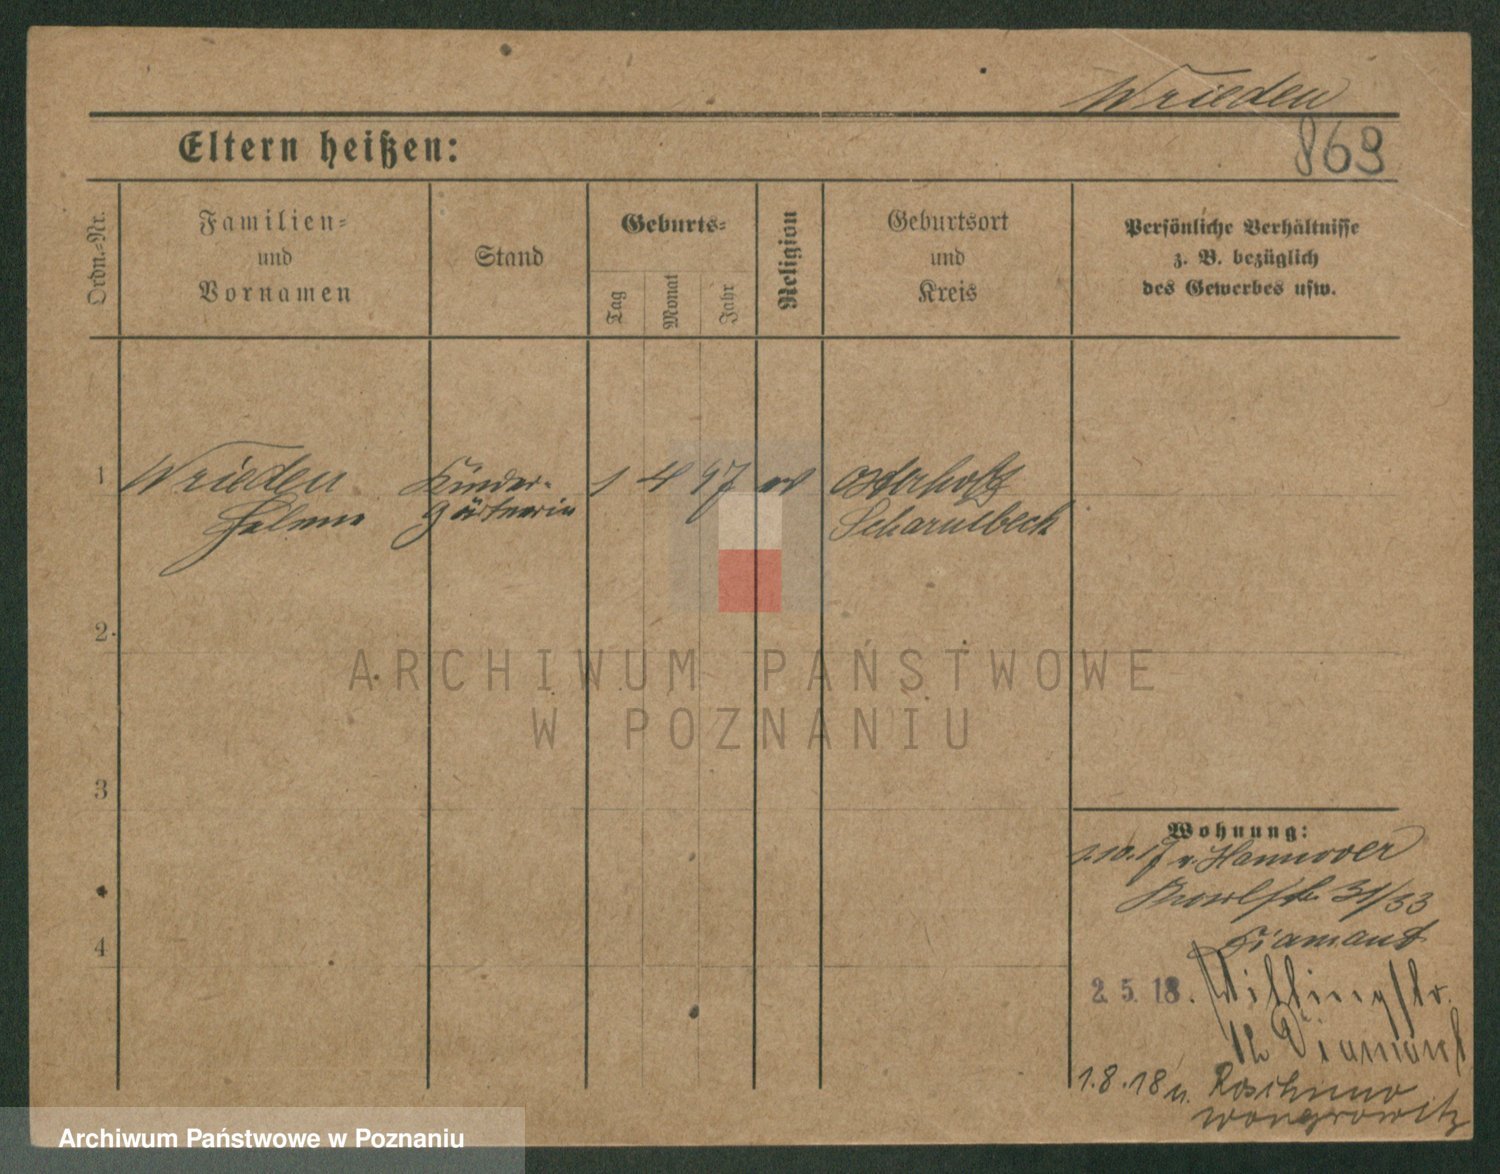 Wrieden
869
Eltern heißen:
Ordn.-Nr.
Familien-
und
Vornamen
Stand
Geburts-
Tag
Monat
Jahr
Religion
Geburtsort
und
Kreis
Persönliche Verhältnisse
z. B. bezüglich
des Gewerbes usw.
1
Wrieden
Helene
Kinder-
gärtnerin
1
4
97
ev
Osterholz
Scharmbeck
2
3
4
Wohnung:
1.10.17 v. Hannover
31/33
Diamant
2. 5. 18.
12 Diamant
1.8.18 n. Roschmo
wongrowitz
ARCHIWUM PAŃSTWOWE
W POZNANIU
Archiwum Państwowe w Poznaniu